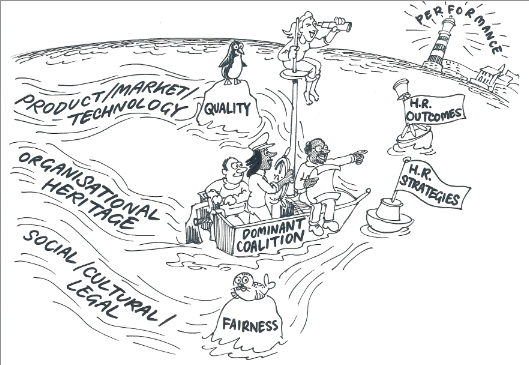 PERFORMANCE
PRODUCT/MARKET/
TECHNOLOGY
QUALITY
H.R.
OUTCOMES
ORGANISATIONAL
HERITAGE
H.R.
STRATEGIES
DOMINANT
COALITION
SOCIAL/CULTURAL/
LEGAL
FAIRNESS